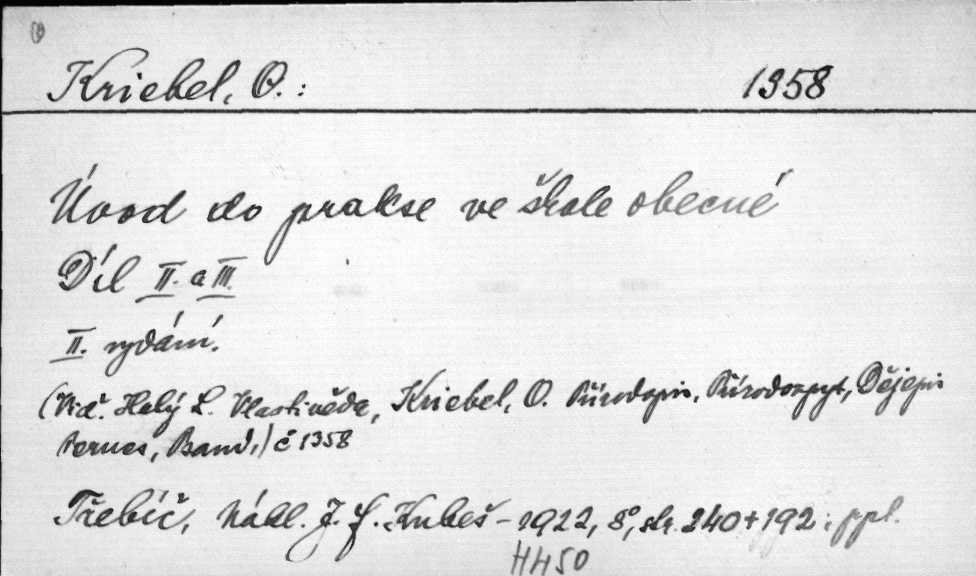 Kriebel, O.: 1358
Úvod do prakse ve škole obecné
Díl II. a III.
II. vydání.
(Viď. Holý L. Vlastivěda, Kriebel, O. Přírodopis, Přírodozpyt, Dějepis
č 1358
Třebíč, Nákl. J. F. Kubeš - 1922, 8°, str. 240 + 192; ppl.
HH50